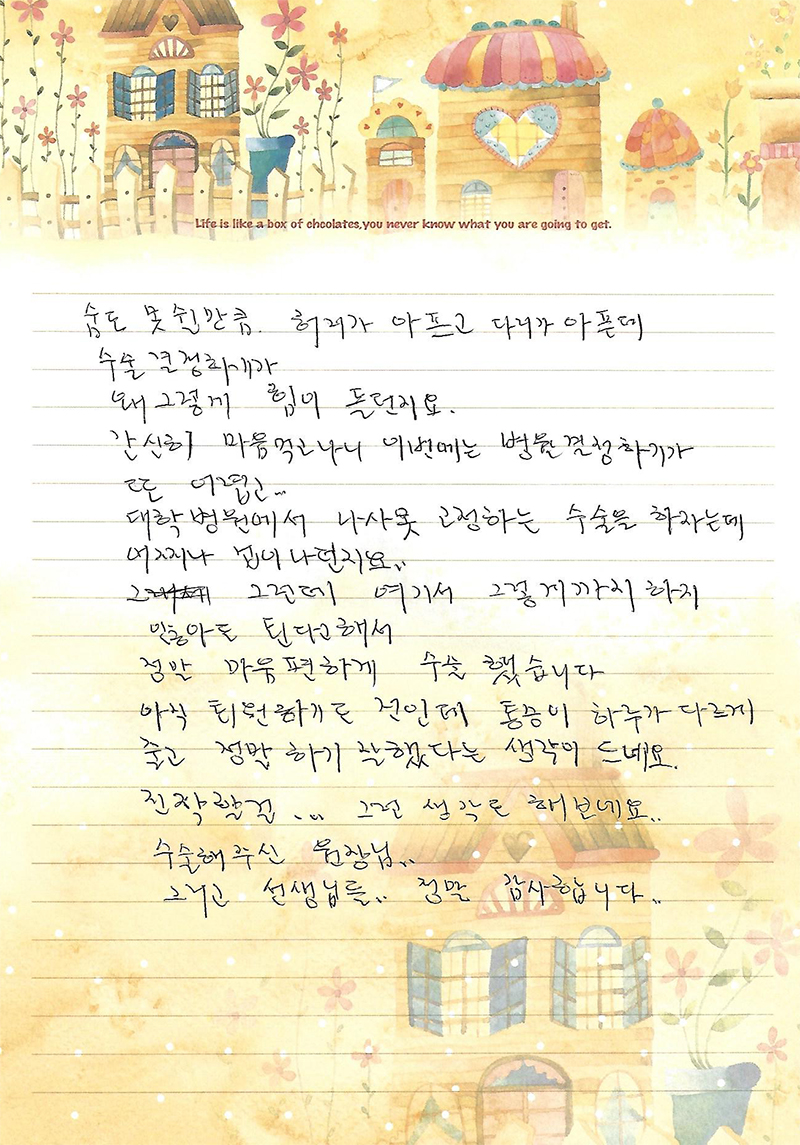 Life is like a box of chcolates,you never know what you are going to get.
숨도 못 쉴만큼. 허리가 아프고 다리가 아픈데
수술 결정하기가
왜 그렇게 힘이 들던지요.
간신히 마음먹고나니 이번에는 병원결정하기가
또 어렵고..
대학병원에서 나사못 고정하는 수술을 하자는데
어찌나 겁이나던지요..
그런데 여기서 그렇게까지 하지
않아도 된다고해서
정말 마음편하게 수술 했습니다
아직 퇴원하기도 전인데 통증이 하루가 다르게
줄고 정말 하기 잘했다는 생각이 드네요.
진작할걸 ... 그런 생각도 해보네요..
수술해주신 원장님..
그리고 선생님들.. 정말 감사합니다..